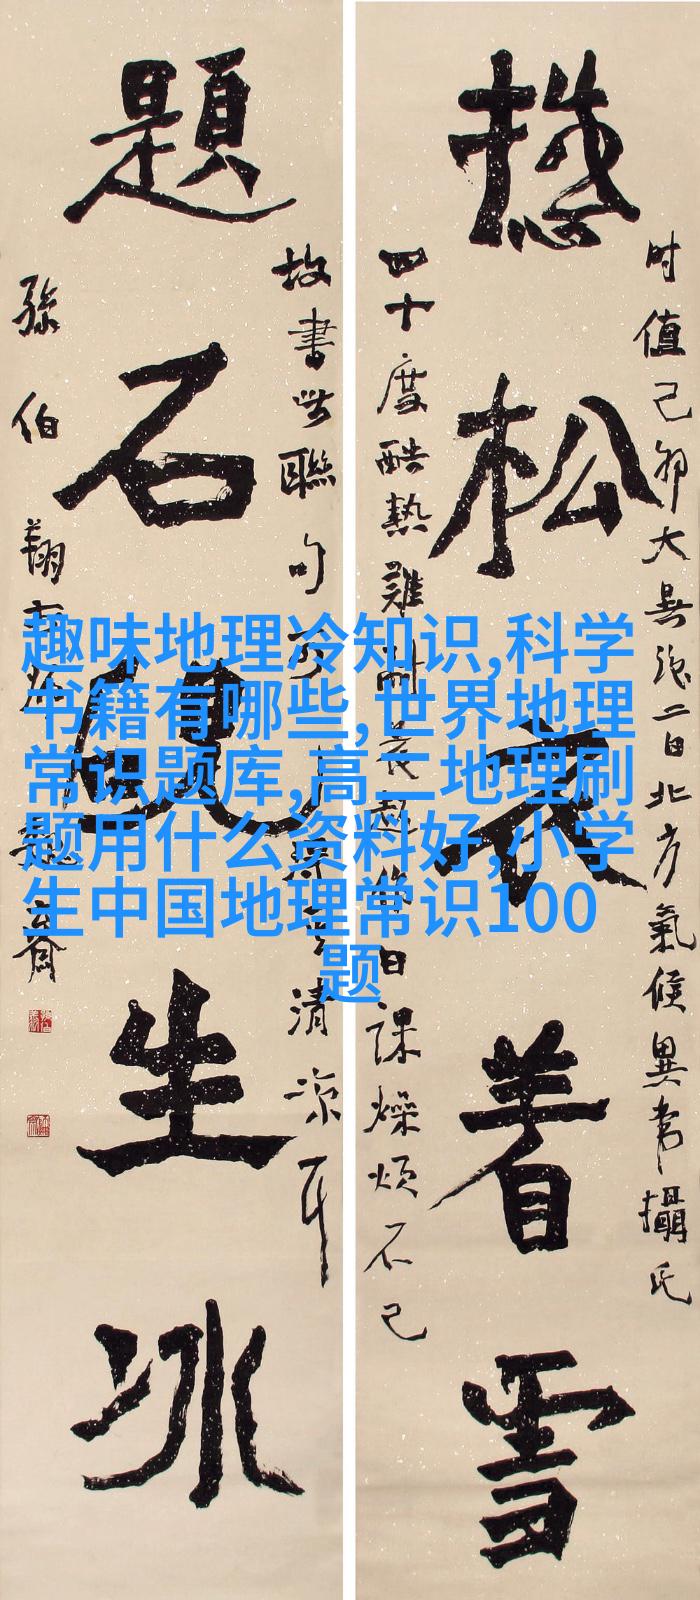 时值己卯大暑後二日北方氣候異常攝氏
松衣着雪
四十度酷熱難耐日課燥煩不已
故書此聯句清凉耳
題石硯生冰
孫伯翔
趣味地理冷知识,科学
书籍有哪些,世界地理
常识题库,高二地理刷
题用什么资料好,小学
生中国地理常识100
题